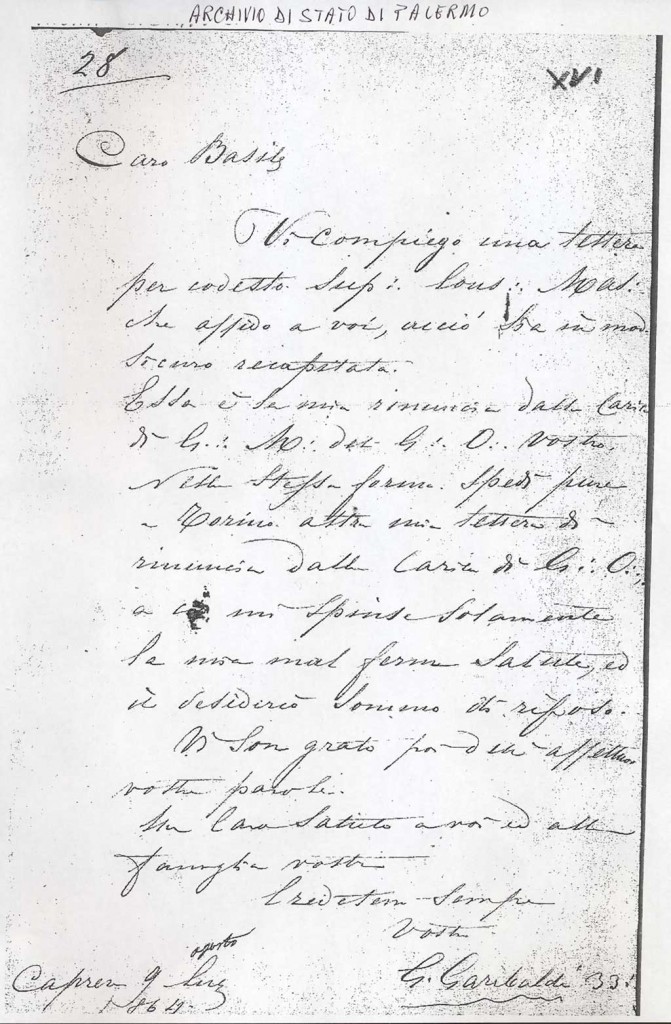 ARCHIVIO DI STATO DI PALERMO
28
XVI
Caro Basile
Vi compiego una lettera
per codesto Sup∴ Cons∴ Mas∴
che affido a voi, acciò sia in mod
sicuro recapitata.
Essa è la mia rinuncia dalla Carica
di G∴ M∴ del G∴ O∴ vostro.
Nella stessa forma spedì pure
a Torino altra mia lettera di
rinuncia dalla Carica di G∴ O∴,
a mi spinse solamente
la mia mal ferma salute, ed
il desiderio sommo di riposo.
Vi son grato poi delle affettuo
vostre parole.
Un Caro saluto a voi ed alla
famiglia vostra
Credetemi sempre
Vostro
agosto
Caprera 9 Lug
1864
G. Garibaldi 33∴